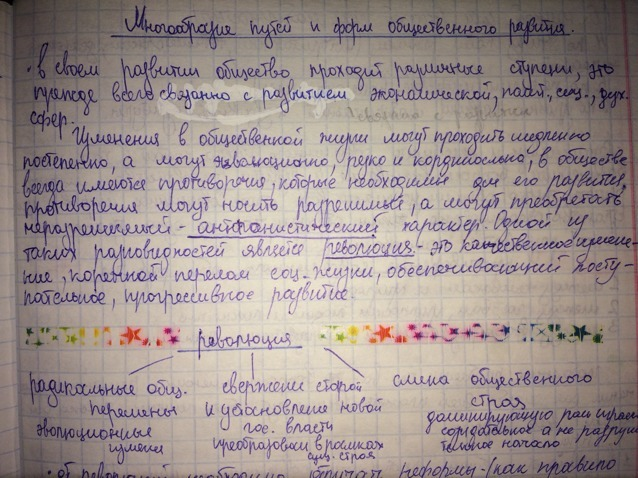 Многообразие путей и форм общественного развития.
· в своем развитии общество проходит различные ступени, это
прежде всего связанно с развитием экономической, полит., соц., дух.
сфер.
Изменения в общественной жизни могут проходить медленно
постепенно, а могут резко и кординально, в обществе
всегда имеются противоречия, которые необходимы для его развития,
противоречия могут носить разрешимые, а могут преобретать
неразрешимый - характер. Одной из
таких разновидностей является революция - это качественное измене-
ние, коренной перелом соц. жизни, обеспечивающий посту-
пательное, прогрессивное развитие.
революция
радикальные общ. свержение старой смена общественного
перемены и установление новой строя
эволюционные гос. власти доминирующую
преобразован в рамках созидательное а не
сущ. строя начало
· от необходимо реформы - (как правило